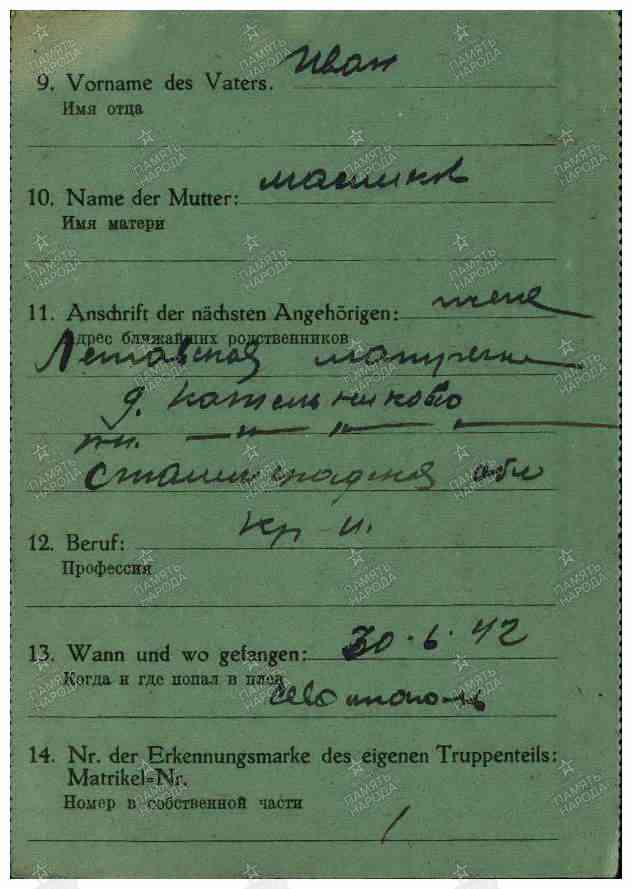 Иван
9. Vorname des Vaters.
Имя отца
10. Name der Mutter:
Имя матери
11. Anschrift der nächsten Angehörigen: жена
Адрес ближайших родственников
д. Котельниково
Сталинградская обл
12. Beruf: кр-н.
Профессия
13. Wann und wo gefangen: 30.6.42
Когда и где попал в плен
Севастополь
14. Nr. der Erkennungsmarke des eigenen Truppenteils:
Matrikel=Nr.
Номер в собственной части
ПАМЯТЬ НАРОДА